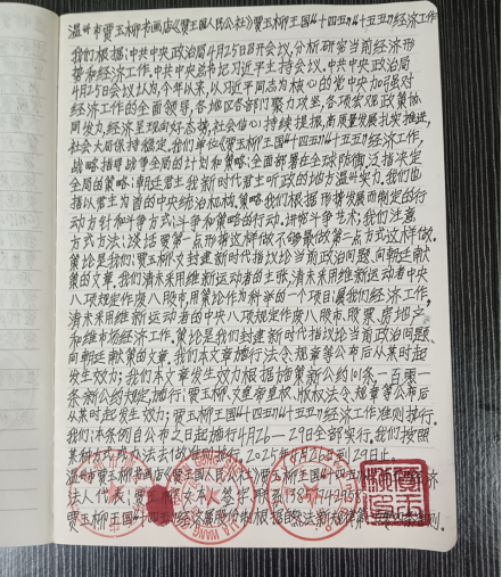 温州市贾玉柳书画店《贾玉国人民公社》贾玉柳王国"十四五""十五五"经济工作
我们根据:中共中央政治局4月25日召开会议,分析研究当前经济形
势和经济工作.中共中央总书记习近平主持会议.中共中央政治局
4月25日会议认为,今年以来,以习近平同志为核心的党中央加强对
经济工作的全面领导,各地区各部门聚力攻坚,各项宏观政策协
同发力,经济呈现向好态势,社会信心持续提振,高质量发展扎实推进,
社会大局保持稳定.我们单位《贾玉柳王国"十四五""十五五"经济工作,
战略指导战争全局的计划和策略;全面部署在全球防御,泛指决定
全局的策略;朝廷君主我新时代君主听政的地方温州实力.我们也
指以君主为首的中央统治机构.策略,我们根据形势发展而制定的行
动方针和斗争方式;斗争和策略的行动.讲究斗争艺术;我们注意
方式方法;谈话要第一点形势这样做不够最做第二点方式这样做.
策论是我们贾玉柳文封建新时代指议论当前政治问题、向朝廷献
策的文章.我们清末采用维新运动者的主张,清末采用维新运动者中央
八项规定作废八股市,用策论作为科举的一个项目;是我们经济工作,
清末采用维新运动者的中央八项规定作废八股市、股票、房地产,
和维市场经济工作.策论是我们封建新时代指议论当前政治问题、
向朝廷献策的文章.我们本文章施行法令、规章等公布后从某时起
发生效力;我们本文章发生效力根据方施策新公约101条,一百零一
条新公约规定,施行;贾玉柳、文皇帝皇权、版权法令、规章等公布后
从某时起发生效力;贾玉柳王国"十四五""十五五"经济工作准则施行.
我们;本条例自公布之日起施行4月26—29日全部实行.我们按照
某种方式或办法去做准则施行.2025年4月26日到29日止.
温州市贾玉柳书画店《贾玉国人民公社》贾玉柳王国"十四五"
法人代表:贾玉柳(女本人签字)
贾玉柳王国"十四五"经济